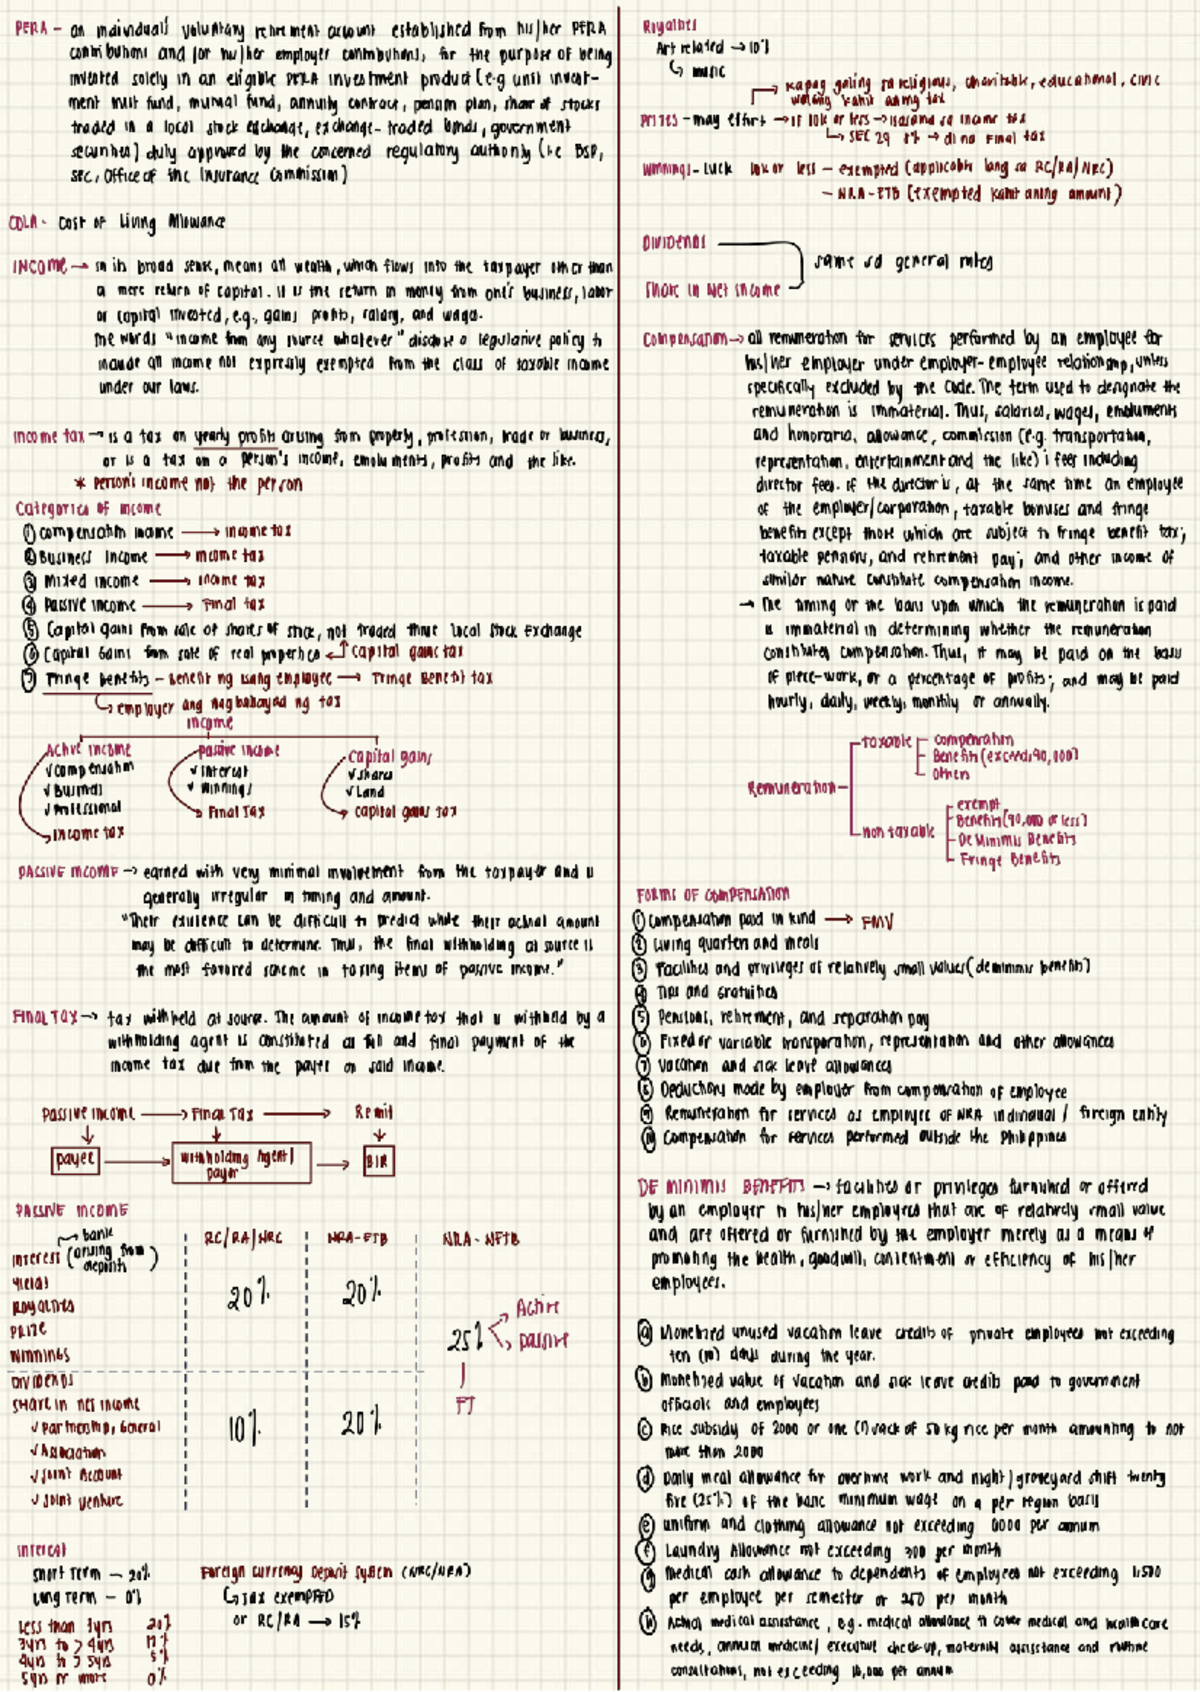 PERA - an individual's voluntary retirement account established from his/her PERA
contributions and/or his/her employer contributions, for the purpose of being
invested solely in an eligible PERA investment product (e.g unit invest-
ment trust fund, mutual fund, annuity contract, pension plan, share of stocks
traded in a local stock exchange, exchange-traded bonds, government
securities) duly approved by the concerned regulatory authority (i.e BSP,
SEC, Office of the Insurance Commission)
COLA - Cost of Living Allowance
INCOME → in its broad sense, means all wealth, which flows into the taxpayer other than
a mere return of capital. It is the return in money from one's business, labor
or capital invested, e.g., gains profits, salary, and wage.
The words "income from any source whatever" disclose a legislative policy to
include all income not expressly exempted from the class of taxable income
under our laws.
Income tax → is a tax on yearly profits arising from property, profession, trade or business,
or is a tax on a person's income, emoluments, profits and the like.
* Person's income not the person
Categories of income
① Compensation income → income tax
② Business Income → income tax
③ Mixed income → income tax
④ Passive income → Final tax
⑤ Capital gains from sale of shares of stock, not traded thru local Stock Exchange
⑥ Capital Gains from sale of real properties ↔ capital gains tax
⑦ Fringe benefits - benefit ng isang employee → Fringe Benefit tax
↳ employer ang nagbabayad ng tax
income
Active income
✓ Compensation
✓ Business
✓ Professional
→ income tax
Passive income
✓ Interest
✓ Winnings
→ Final Tax
Capital gains
✓ Shares
✓ Land
→ Capital gains tax
PASSIVE INCOME → earned with very minimal involvement from the taxpayer and is
generally irregular in timing and amount.
"Their existence can be difficult to predict while their actual amount
may be difficult to determine. Thus, the final withholding at source is
the most favored scheme in taxing items of passive income."
FINAL TAX → tax withheld at source. The amount of income tax that is withheld by a
withholding agent is constituted as full and final payment of the
income tax due from the payee on said income.
Passive income → Final Tax → Remit
payee → withholding Agent/ payor → BIR
PASSIVE INCOME
RC/RA/NRC NRA-ETB NRA-NETB
Interest (arising from deposits) → bank
Yield
Royalties
PRIZE
WINNINGS
20% 20%
25% Active
Passive
FT
DIVIDENDS
SHARE in net income
✓ Partnership, General
✓ Association
✓ Joint Account
✓ Joint Venture
10% 20%
Interest
Short Term - 20%
Long Term - 0%
Less than 3yrs 20%
3yrs to > 4yrs 12%
4yrs to > 5yrs 5%
5yrs or more 0%
Foreign currency Deposit System (NRC/NRA)
↳ Tax exempted
or RC/RA → 15%
Royalties
Art related → 10%
↳ music
→ kapag galing sa religious, charitable, educational, civic
walang kahit anong tax
PRIZES - may effort → if 10k or less → isasama sa income tax
↳ SEC 24 8% → di na final tax
Winnings - luck 10k or less - exempted (applicable lang sa RC/RA/NRC)
- NRA-ETB (exempted kahit anong amount)
DIVIDENDS
Share in Net income
same sa general rates
Compensation → all remuneration for services performed by an employee for
his/her employer under employer-employee relationship, unless
specifically excluded by the Code. The term used to designate the
remuneration is immaterial. Thus, salaries, wages, emoluments
and honoraria, allowance, commission (e.g. transportation,
representation, entertainment and the like) ; fees including
director fees. if the director is, at the same time an employee
of the employer/corporation, taxable bonuses and fringe
benefits except those which are subject to fringe benefit tax;
taxable pensions, and retirement pay; and other income of
similar nature constitute compensation income.
→ The timing or the basis upon which the remuneration is paid
is immaterial in determining whether the remuneration
constitutes compensation. Thus, it may be paid on the basis
of piece-work, or a percentage of profits; and may be paid
hourly, daily, weekly, monthly or annually.
Remuneration
taxable
Compensation
Benefits (exceeds 90,000)
Others
Non taxable
exempt
Benefits (90,000 or less)
De Minimis Benefits
Fringe Benefits
FORMS OF COMPENSATION
① Compensation paid in kind → FMV
② Living quarters and meals
③ Facilities and privileges of relatively small values (deminimis benefits)
④ Tips and Gratuities
⑤ Pensions, retirement, and separation pay
⑥ Fixed or variable transporation, representation and other allowances
⑦ Vacation and sick leave allowances
⑧ Deductions made by employer from compensation of employee
⑨ Remuneration for services as employee of NRA individual / foreign entity
⑩ Compensation for services performed outside the Philippines
DE MINIMIS BENEFITS → facilities or privileges furnished or offered
by an employer to his/her employees that are of relatively small value
and are offered or furnished by the employer merely as a means of
promoting the health, goodwill, contentment or efficiency of his/her
employees.
ⓐ Monetized unused vacation leave credits of private employees not exceeding
ten (10) days during the year.
ⓑ Monetized value of vacation and sick leave credits paid to government
officials and employees
ⓒ Rice subsidy of 2000 or one (1) sack of 50 kg rice per month amounting to not
more than 2000
ⓓ Daily meal allowance for overtime work and night/graveyard shift twenty
five (25%) of the basic minimum wage on a per region basis
ⓔ uniform and clothing allowance not exceeding 6000 per annum
ⓕ Laundry Allowance not exceeding 300 per month
ⓖ Medical cash allowance to dependents of employees not exceeding 1,500
per employee per semester or 250 per month
ⓗ Actual medical assistance, e.g. medical allowance to cover medical and healthcare
needs, annual medicine/ executive check-up, maternity assistance and routine
consultations, not exceeding 10,000 per annum